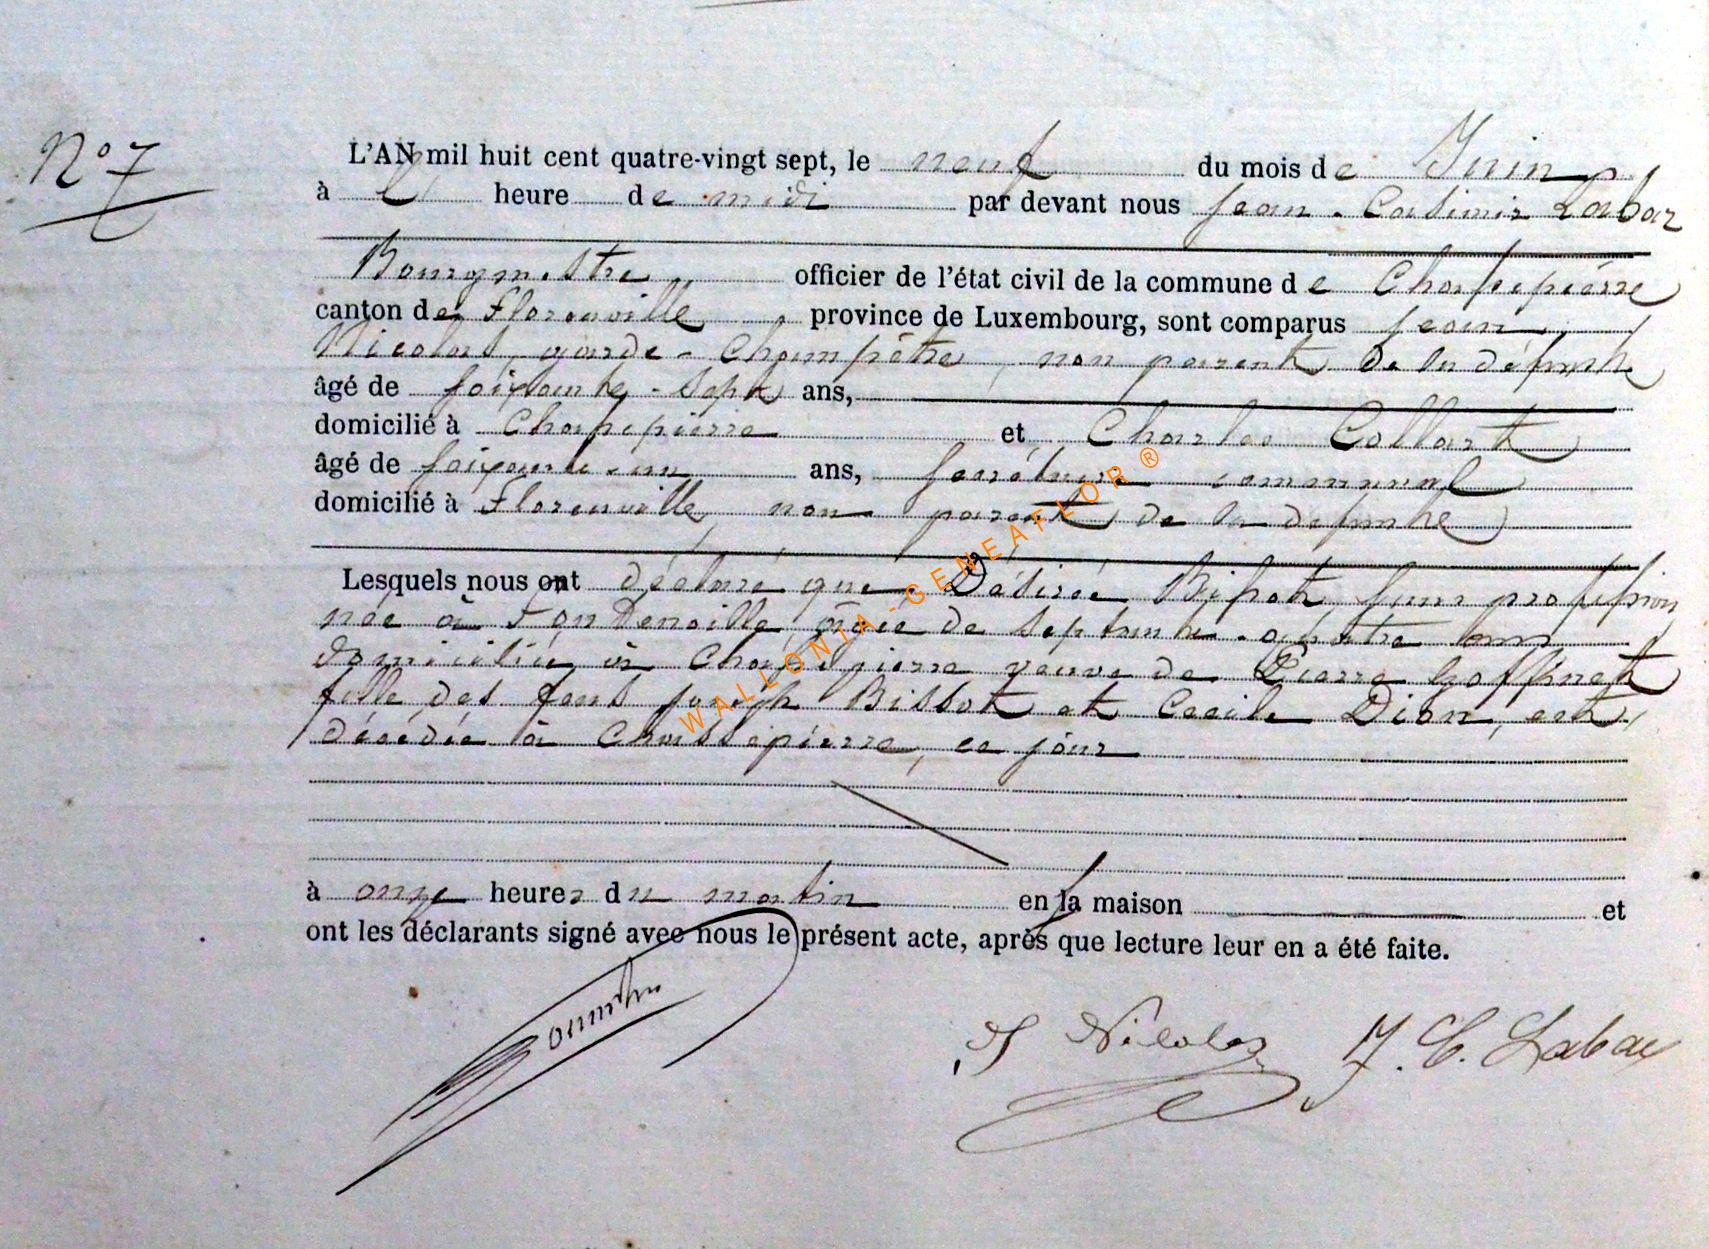 N° 7
L'AN mil huit cent quatre-vingt sept, le neuf du mois de Juin
à l' heure de midi par devant nous Jean-Casimir Labar
Bourgmestre officier de l'état civil de la commune de Chassepierre
canton de Florenville province de Luxembourg, sont comparus Jean
Nicolas, garde-Champêtre, non parent de la défunte
âgé de soixante-sept ans,
domicilié à Chassepierre et Charles Collart
âgé de soixante-un ans, secrétaire communal
domicilié à Florenville, non parent de la défunte
Lesquels nous ont déclaré que Désirée Bissot, sans profession
née à Fontenoille, âgée de septante-quatre ans
domiciliée à Chassepierre veuve de Pierre Goffinet
fille des feus Joseph Bissot et Cecile Dion, est
décédée à Chassepierre, ce jour
à onze heures du matin en la maison et
ont les déclarants signé avec nous le présent acte, après que lecture leur en a été faite.
J Nicolas J. C. Labar
WALLONIA-GENEAFLOR ®